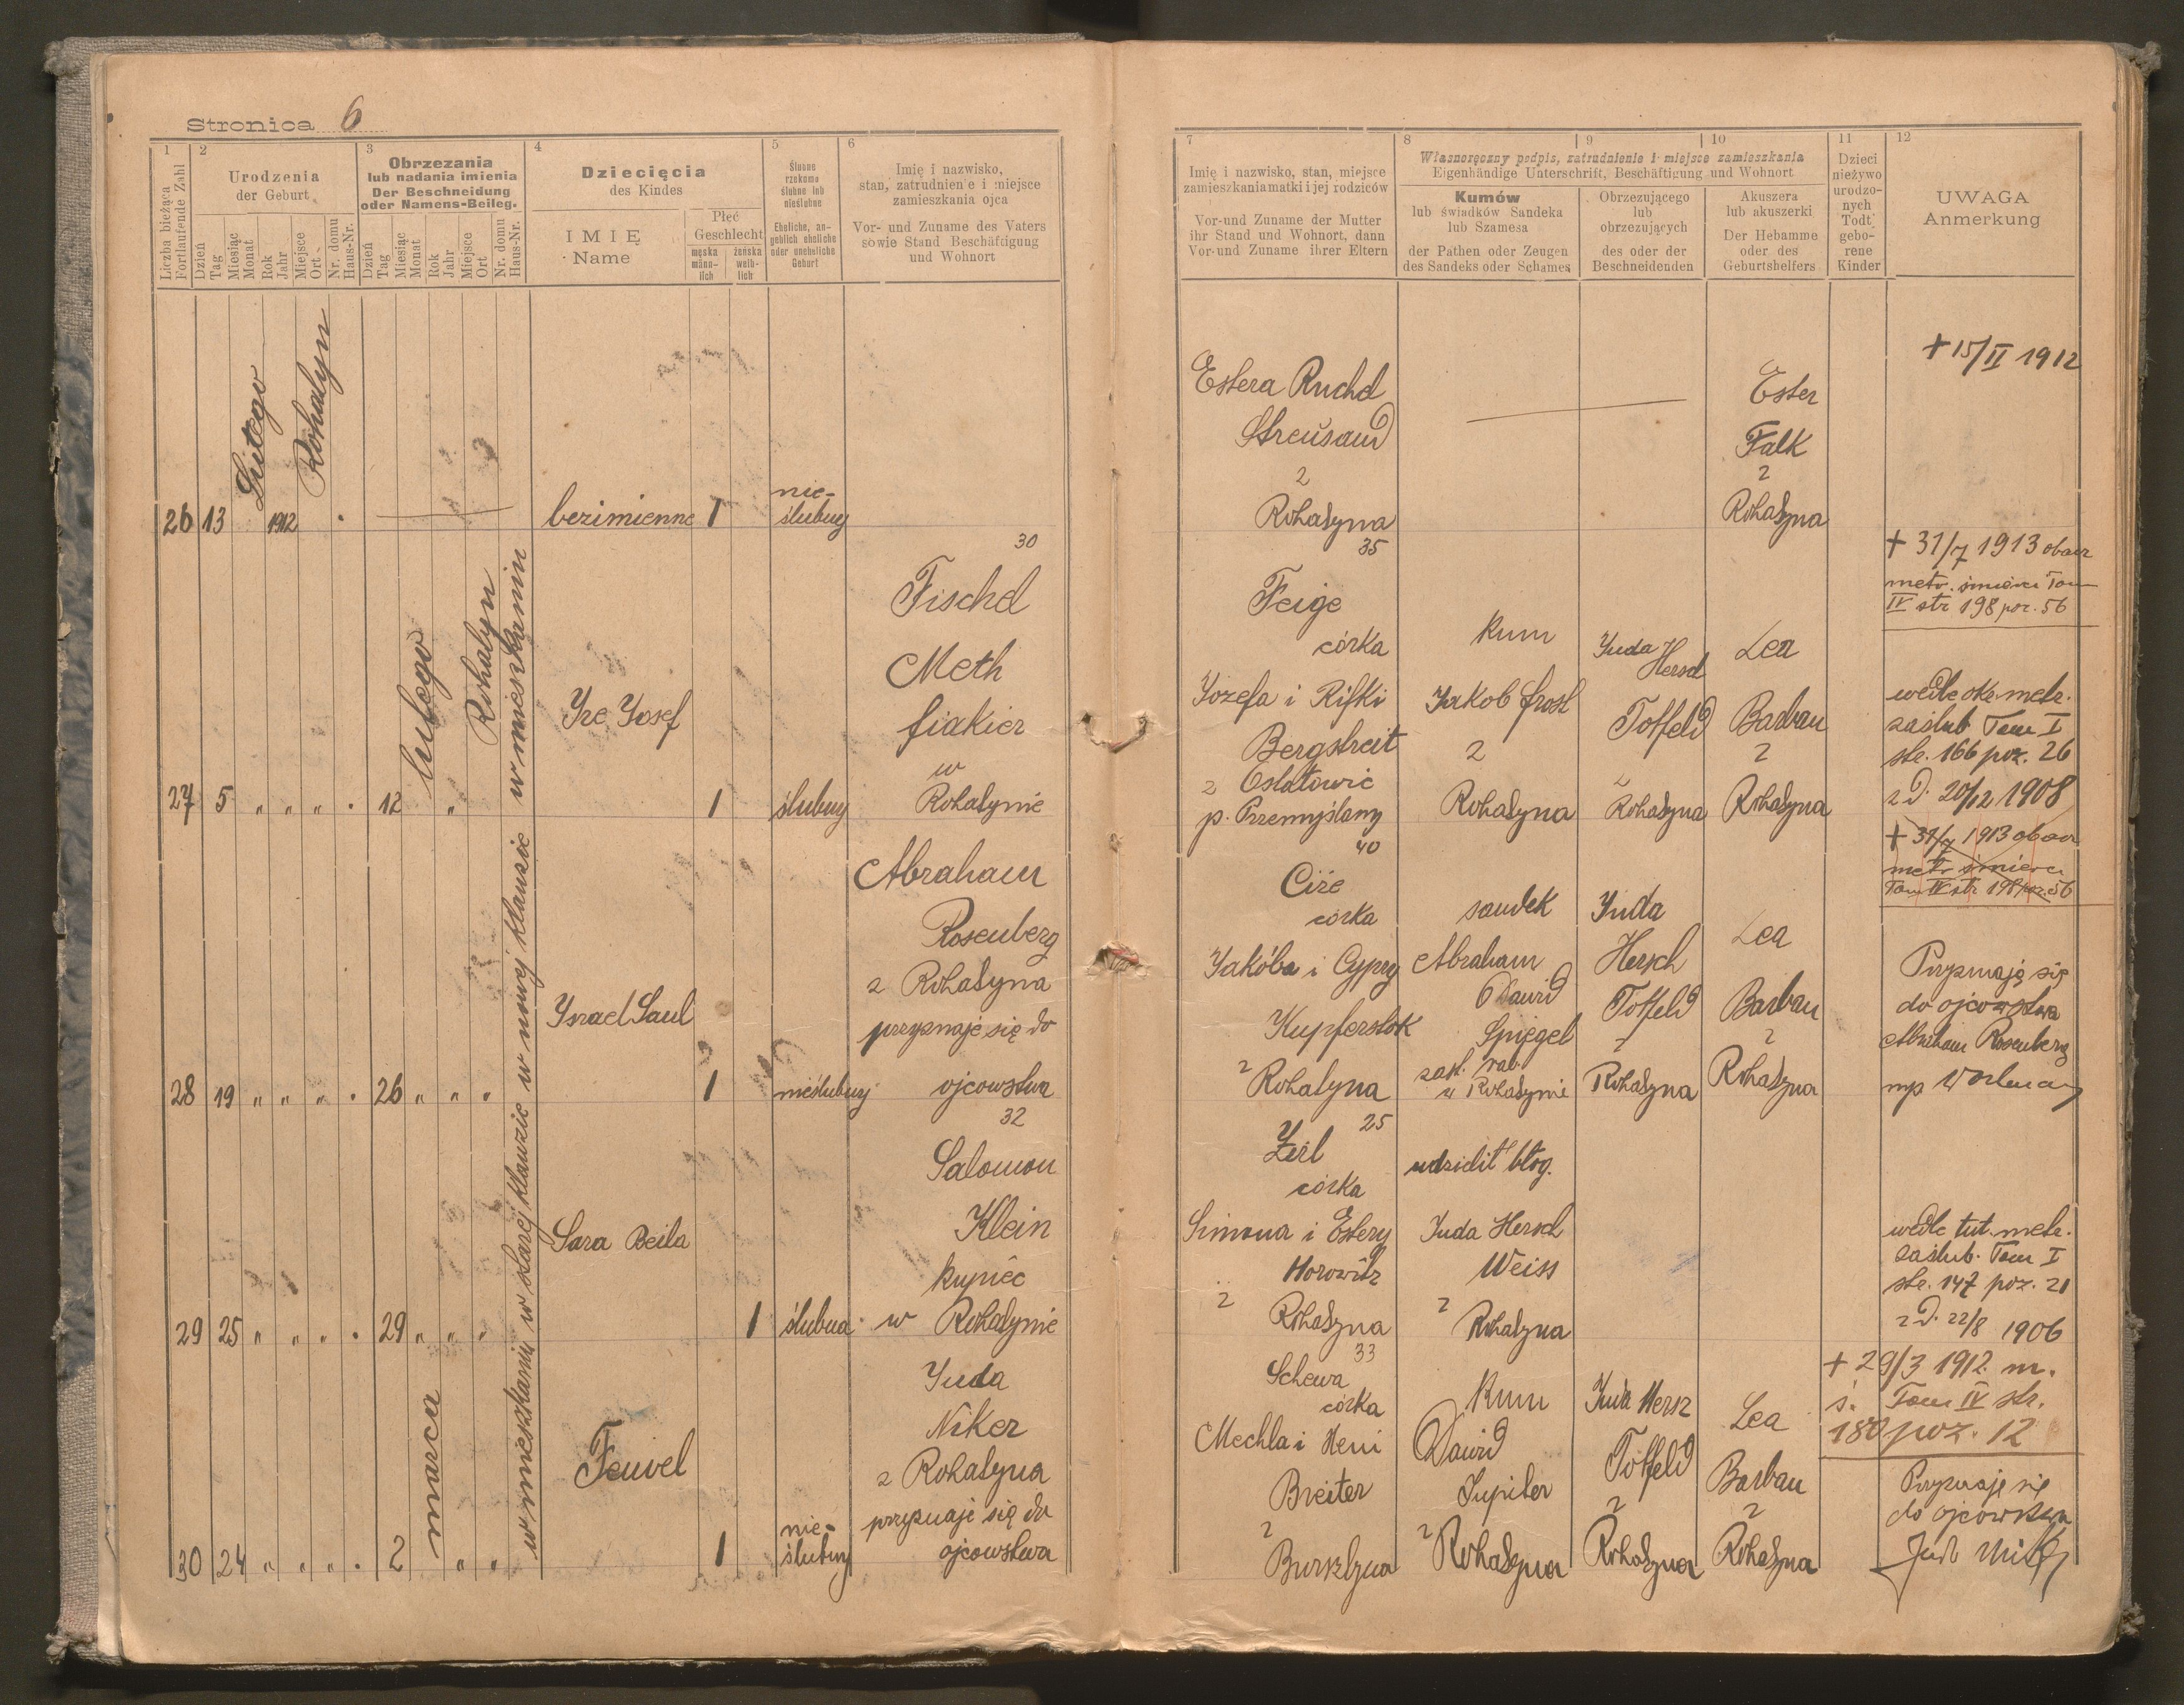 Stronica 6
1
Liczba bieżąca
Fortlaufende Zahl
2
Urodzenia
der Geburt
Dzień
Tag
Miesiąc
Monat
Rok
Jahr
Miejsce
Ort
Nr. domu
Haus-Nr.
3
Obrzezania
lub nadania imienia
Der Beschneidung
oder Namens-Beileg.
Dzień
Tag
Miesiąc
Monat
Rok
Jahr
Miejsce
Ort
Nr. domu
Haus-Nr.
4
Dziecięcia
des Kindes
IMIĘ
Name
Płeć
Geschlecht
męska
männ-
lich
żeńska
weib-
lich
5
Ślubne
rzekomo
ślubne lub
nieślubne
Eheliche, an-
geblich eheliche
oder uneheliche
Geburt
6
Imię i nazwisko,
stan, zatrudnienie i miejsce
zamieszkania ojca
Vor- und Zuname des Vaters
sowie Stand Beschäftigung
und Wohnort
7
Imię i nazwisko, stan, miejsce
zamieszkania matki i jej rodziców
Vor-und Zuname der Mutter
ihr Stand und Wohnort, dann
Vor-und Zuname ihrer Eltern
8
9
10
Własnoręczny podpis, zatrudnienie i miejsce zamieszkania
Eigenhändige Unterschrift, Beschäftigung und Wohnort
Kumów
lub świadków Sandeka
lub Szamesa
der Pathen oder Zeugen
des Sandeks oder Schames
Obrzezującego
lub
obrzezujących
des oder der
Beschneidenden
Akuszera
lub akuszerki
Der Hebamme
oder des
Geburtshelfers
11
Dzieci
nieżywo
urodzo-
nych
Todt
gebo-
rene
Kinder
12
UWAGA
Anmerkung
26 13 Lutego 1912 Rohatyn
bezimienne 1
nie-
ślubny
Estera Ruchel
Streusand
z
Rohatyna
Ester
Falk
z
Rohatyna
+ 15/II 1912
27 5 " " " 12 lutego " Rohatyn w mieszkaniu
Ize Josef
1 ślubny
30
Fischel
Meth
fiakier
w
Rohatynie
35
Feige
córka
Jozefa i Rifki
Bergstreit
z
p. Przemyślany
kum
Jakob Frost
z
Rohatyna
Juda
Hersch
Toffeld
z
Rohatyna
Lea
Barban
z
Rohatyna
+ 31/7 1913 obacz
metr. śmierci Tom
IV str 198 poz. 56
wedle metr.
zaślub Tom I
str. 166 poz. 26
z D. 20/12 1908
28 19 " " " 26 " " " w nowej klauzie
Israel Saul
1 nieślubny
Abraham
Rosenberg
z Rohatyna
przyznaje się do
ojcowstwa
40
Cize
córka
Jakóba i Cypry
Kupferstok
z Rohatyna
sandek
Abraham
Dawid
Spiegel
zast. rab.
w Rohatynie
Juda
Hersch
Toffeld
z
Rohatyna
Lea
Barban
z
Rohatyna
+ 31/7 1913 obacz
metr śmierci
Tom IV str 198 poz. 56
Przyznaję się
do ojcowstwa
Abraham Rosenberg
mp
29 25 " " " 29 " " " w starej klauzie
Sara Beila
1 ślubna
32
Salomon
Klein
kupiec
w Rohatynie
25
Zirl
córka
Simona i Estery
Horowitz
z Rohatyna
udzielił błog.
Juda Hersch
Weiss
z Rohatyna
wedle tut. metr.
zaślub. Tom I
str. 147 poz. 21
z D. 22/8 1906
30 24 " " " 2 marca " " w mieszkaniu
Feuvel
1
nie-
ślubny
Juda
Niker
z Rohatyna
przyznaje się do
ojcowstwa
33
Schewa
córka
Mechla i Heni
Breiter
z
Bursztyna
kum
Dawid
Jupiter
z Rohatyna
Juda Hersz
Toffeld
z
Rohatyna
Lea
Barban
z
Rohatyna
+ 29/3 1912 m.
ś. Tom IV str.
180 poz. 12
Przyznaje się
do ojcowstwa